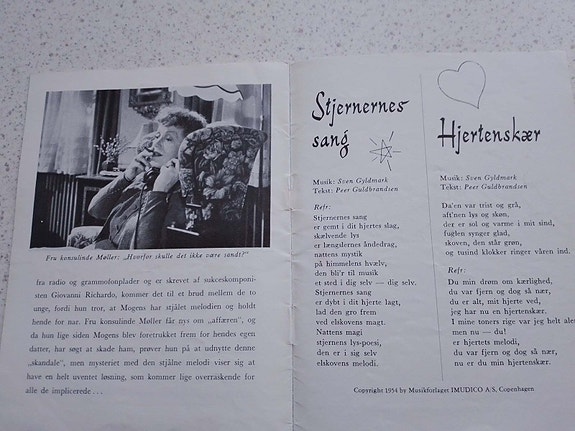 Fru konsulinde Møller: „Hvorfor skulle det ikke være sandt?"
fra radio og grammofonplader og er skrevet af sukceskomponi-
sten Giovanni Richardo, kommer det til et brud mellem de to
unge, fordi hun tror, at Mogens har stjålet melodien og holdt
hende for nar. Fru konsulinde Møller får nys om „affæren", og
da hun lige siden Mogens blev foretrukket frem for hendes egen
datter, har søgt at skade ham, prøver hun på at udnytte denne
„skandale", men mysteriet med den stjålne melodi viser sig at
have en helt uventet løsning, som kommer lige overraskende for
alle de implicerede . . .
Stjernernes
sang
Musik: Sven Gyldmark
Tekst: Peer Guldbrandsen
Refr:
Stjernernes sang
er gemt i dit hjertes slag,
skælvende lys
er længslernes åndedrag,
nattens mystik
på himmelens hvælv,
den bli'r til musik
et sted i dig selv — dig selv.
Stjernernes sang
er dybt i dit hjerte lagt,
lad den gro frem
ved elskovens magt.
Nattens magi
stjernens lys-poesi,
den er i sig selv
elskovens melodi.
Hjertenskær
Musik: Sven Gyldmark
Tekst: Peer Guldbrandsen
Da'en var trist og grå,
aft'nen lys og skøn,
der er sol og varme i mit sind,
fuglen synger glad,
skoven, den står grøn,
og tusind klokker ringer våren ind.
Refr:
Du min drøm om kærlighed,
du var fjern og dog så nær,
du er alt, mit hjerte ved,
jeg har nu en hjertenskær.
I mine toners rige var jeg helt
men nu — du!
er hjertets melodi,
du var fjern og dog så nær,
nu er du min hjertenskær.
Copyright 1954 by Musikforlaget IMUDICO A/S, Copenhagen